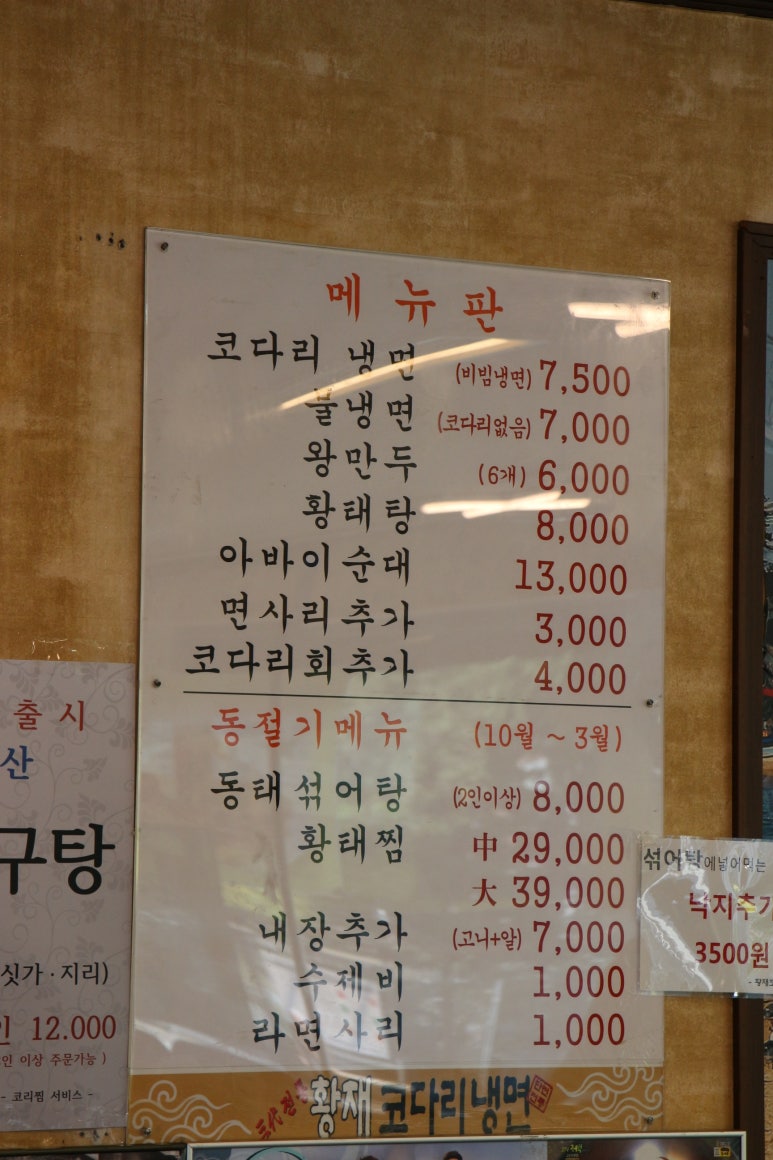 메뉴판
코다리 냉면 (비빔냉면) 7,500
불냉면 (코다리없음) 7,000
왕만두 (6개) 6,000
황태탕 8,000
아바이순대 13,000
면사리추가 3,000
코다리회추가 4,000
동절기메뉴 (10월 ~ 3월)
동태섞어탕 (2인이상) 8,000
황태찜 中 29,000
大 39,000
내장추가 (고니+알) 7,000
수제비 1,000
라면사리 1,000
황재 코다리냉면
출시
산
구탕
싯가 · 지리)
인 12.000
인 이상 주문가능 )
- 코리찜 서비스 -
섞어탕에넣어먹는
낙지추가
3500원